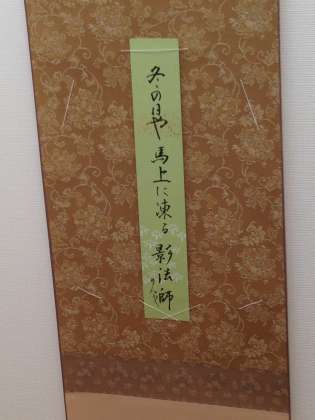 冬の日や馬上に凍る影法師